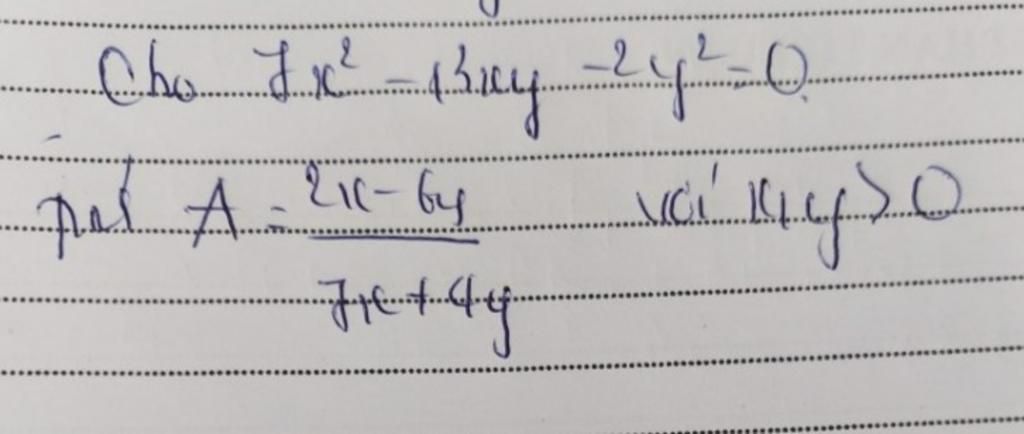 Cho 7x² - 13xy - 2y² = 0
A = 2x - 6y / 7x + 4y với x, y > 0